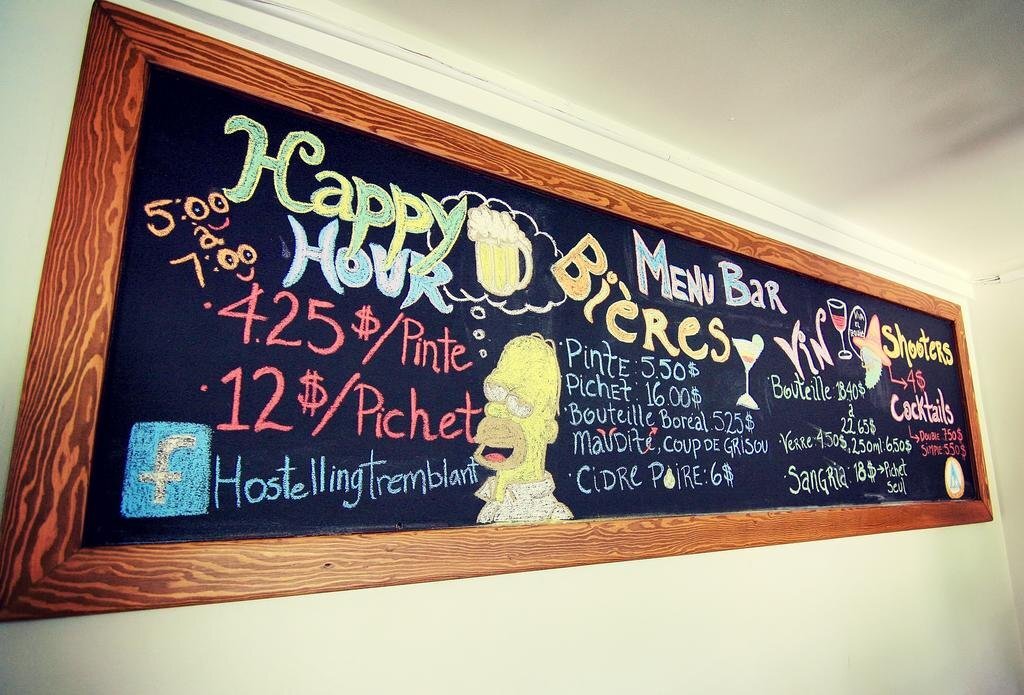 Happy
Hour
5:00
à
7:00
• 4.25$/Pinte
• 12$/Pichet
f HostellingTremblant
Menu Bar
Bières
Pinte: 5.50$
Pichet: 16.00$
Bouteille Boréal: 5.25$
Maudite, Coup de Grisou
• Cidre Poire: 6$
Vin
• Bouteille:
à
22.65$
• Verre: 4.50$, 250ml: 6.50$
Sangria: 18$ → Pichet
Seul
Shooters
→ 4$
Cocktails
→ Double 7.50$
Simple 5.50$